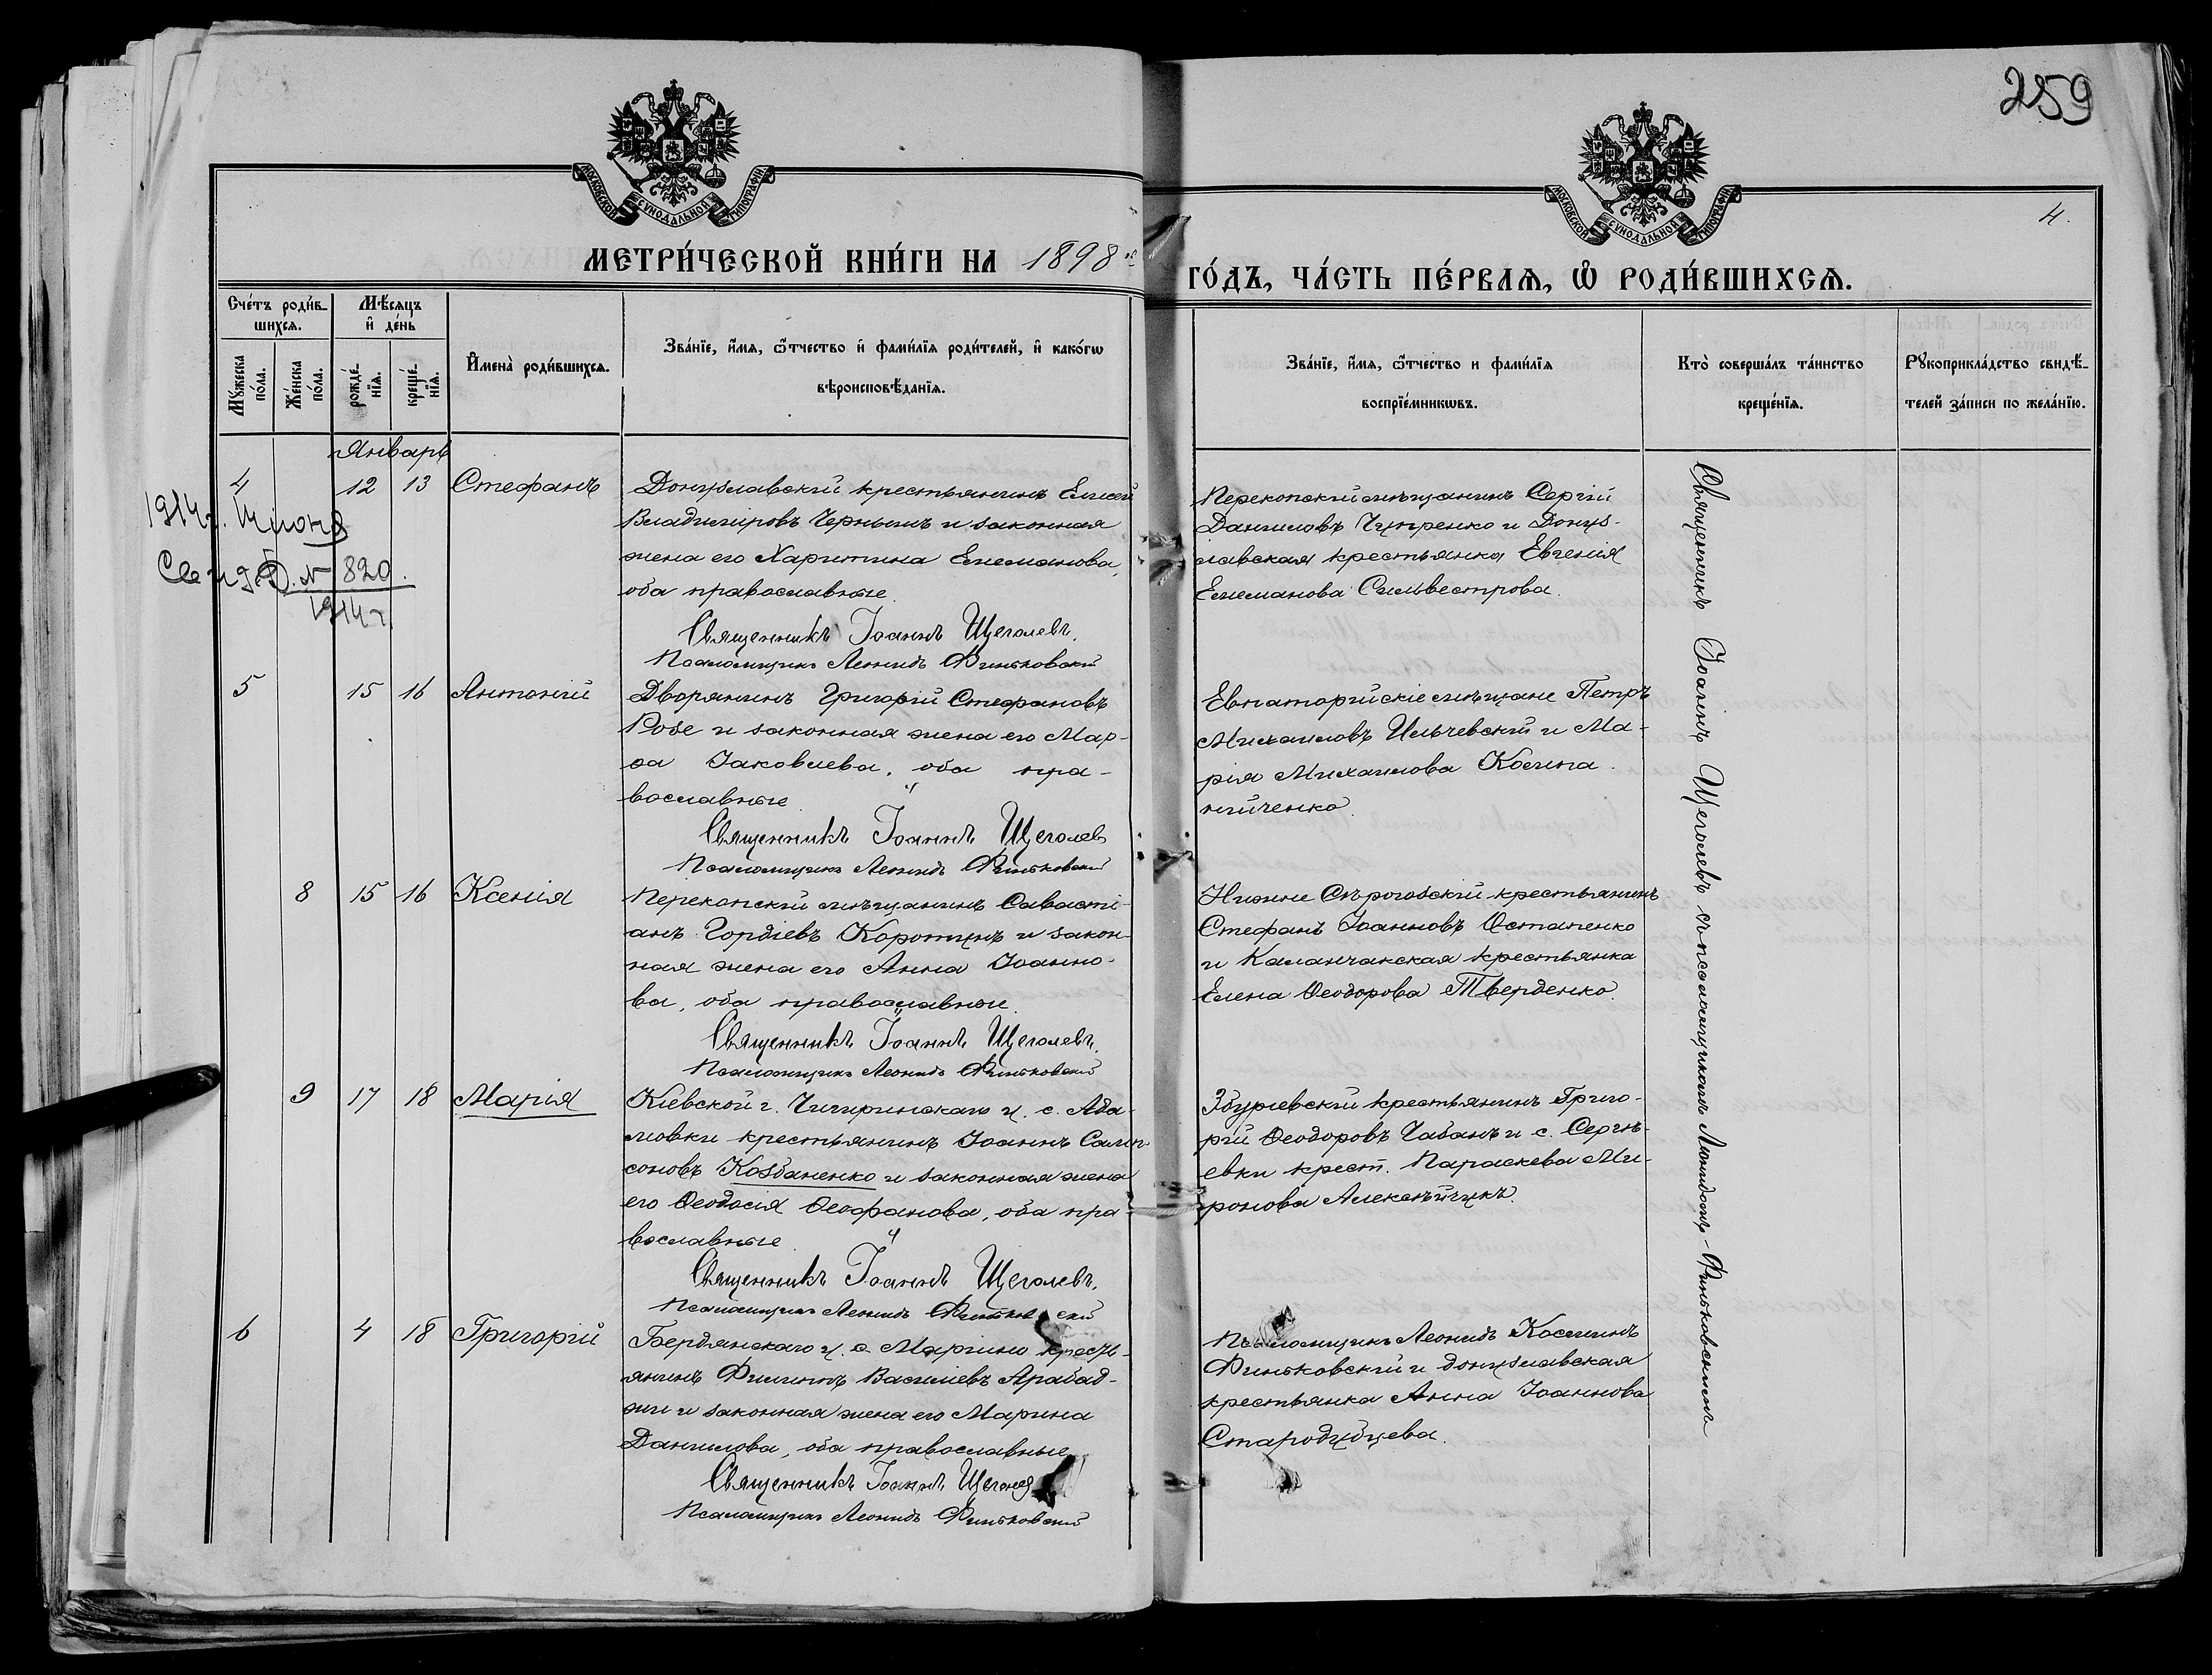 259
МОСКОВСКОЙ СѴНОДАЛЬНОЙ ТИПОГРАФІИ
МОСКОВСКОЙ СѴНОДАЛЬНОЙ ТИПОГРАФІИ
4.
МЕТРИ́ЧЕСКОЙ КНИ́ГИ НА 1898 й
ГО́ДЪ, ЧА́СТЬ ПЕ́РВАѦ, Ѡ҆ РОДИ́ВШИХСѦ.
Сче́тъ роди́в-
шихсѧ.
Мꙋ́жеска по́ла.
Же́нска по́ла.
Мѣ́сѧцъ
и҆ де́нь
рожде́-нїѧ.
креще́-нїѧ.
И҆мена̀ роди́вшихсѧ.
Зва́нїе, и҆́мѧ, ѻ҆́тчество и҆ фами́лїѧ роди́телей, и҆ како́гѡ
вѣроисповѣ́данїѧ.
Зва́нїе, и҆́мѧ, ѻ҆́тчество и фами́лїѧ
воспрїе́мникѡвъ.
Кто̀ соверша́лъ та́инство
креще́нїѧ.
Рꙋкоприкла́дство свидѣ́-
телей за́писи по жела́нїю.
Январь
4 12 13 Стефанъ
Донузлавскій крестьянинъ Елисей
Владиміровъ Черныш и законная
жена его Харитина Емельянова,
оба православные.
Священникъ Іоаннъ Щеголевъ.
Псаломщикъ Леонидъ Финьковскій
Перекопскій мѣщанинъ Сергій
Даниловъ Чупренко и Донуз-
лавская крестьянка Евгенія
Емельянова Сильвестрова.
1914г. Июня
Свид. № 820.
1914 г.
5 15 16 Антоній
Дворянинъ Григорій Стефановъ
Робе и законная жена его Мар-
ѳа Іаковлева, оба пра-
вославные.
Священникъ Іоаннъ Щеголев
Псаломщикъ Леонидъ Финьковскій
Евпаторійскіе мѣщане Петръ
Михаиловъ Ильчевскій и Ма-
рія Михаилова Калина
нійченко.
8 15 16 Ксенія
Перекопскій мѣщанинъ Савасті-
анъ Гордіевъ Коротунъ и закон-
ная жена его Анна Іоанно-
ва, оба православные.
Священникъ Іоаннъ Щеголевъ.
Псаломщикъ Леонидъ Финьковскій
Нижне Сѣрогозскій крестьянинъ
Стефанъ Іоанновъ Остапенко
и Каланчакская крестьянка
Елена Ѳеодорова Тверденко.
9 17 18 Марія
Кіевской г. Чигиринскаго у. с. Ада-
мовки крестьянинъ Іоаннъ Самп-
соновъ Козбаненко и законная жена
его Ѳеодосія Ѳеофанова, оба пра-
вославные.
Священникъ Іоаннъ Щеголевъ.
Псаломщикъ Леонидъ Финьковскій
Збурьевскій крестьянинъ Григо-
рій Ѳеодоровъ Чабанъ и с. Сергѣ-
евки крест. Параскева Ми-
ронова Алексѣйчукъ.
6 4 18 Григорій
Бердянскаго у. с. Маргино кресть-
янинъ Филиппъ Василіевъ Арабад-
жи и законная жена его Марина
Данилова, оба православные
Священникъ Іоаннъ Щеголев
Псаломщикъ Леонидъ Финьковскій
Псаломщикъ Леонидъ Косминъ
Финьковскій и донузлавская
крестьянка Анна Іоаннова
Стародубцева.
Священникъ Іоаннъ Щеголевъ съ псаломщикомъ Леонидомъ Финьковскимъ